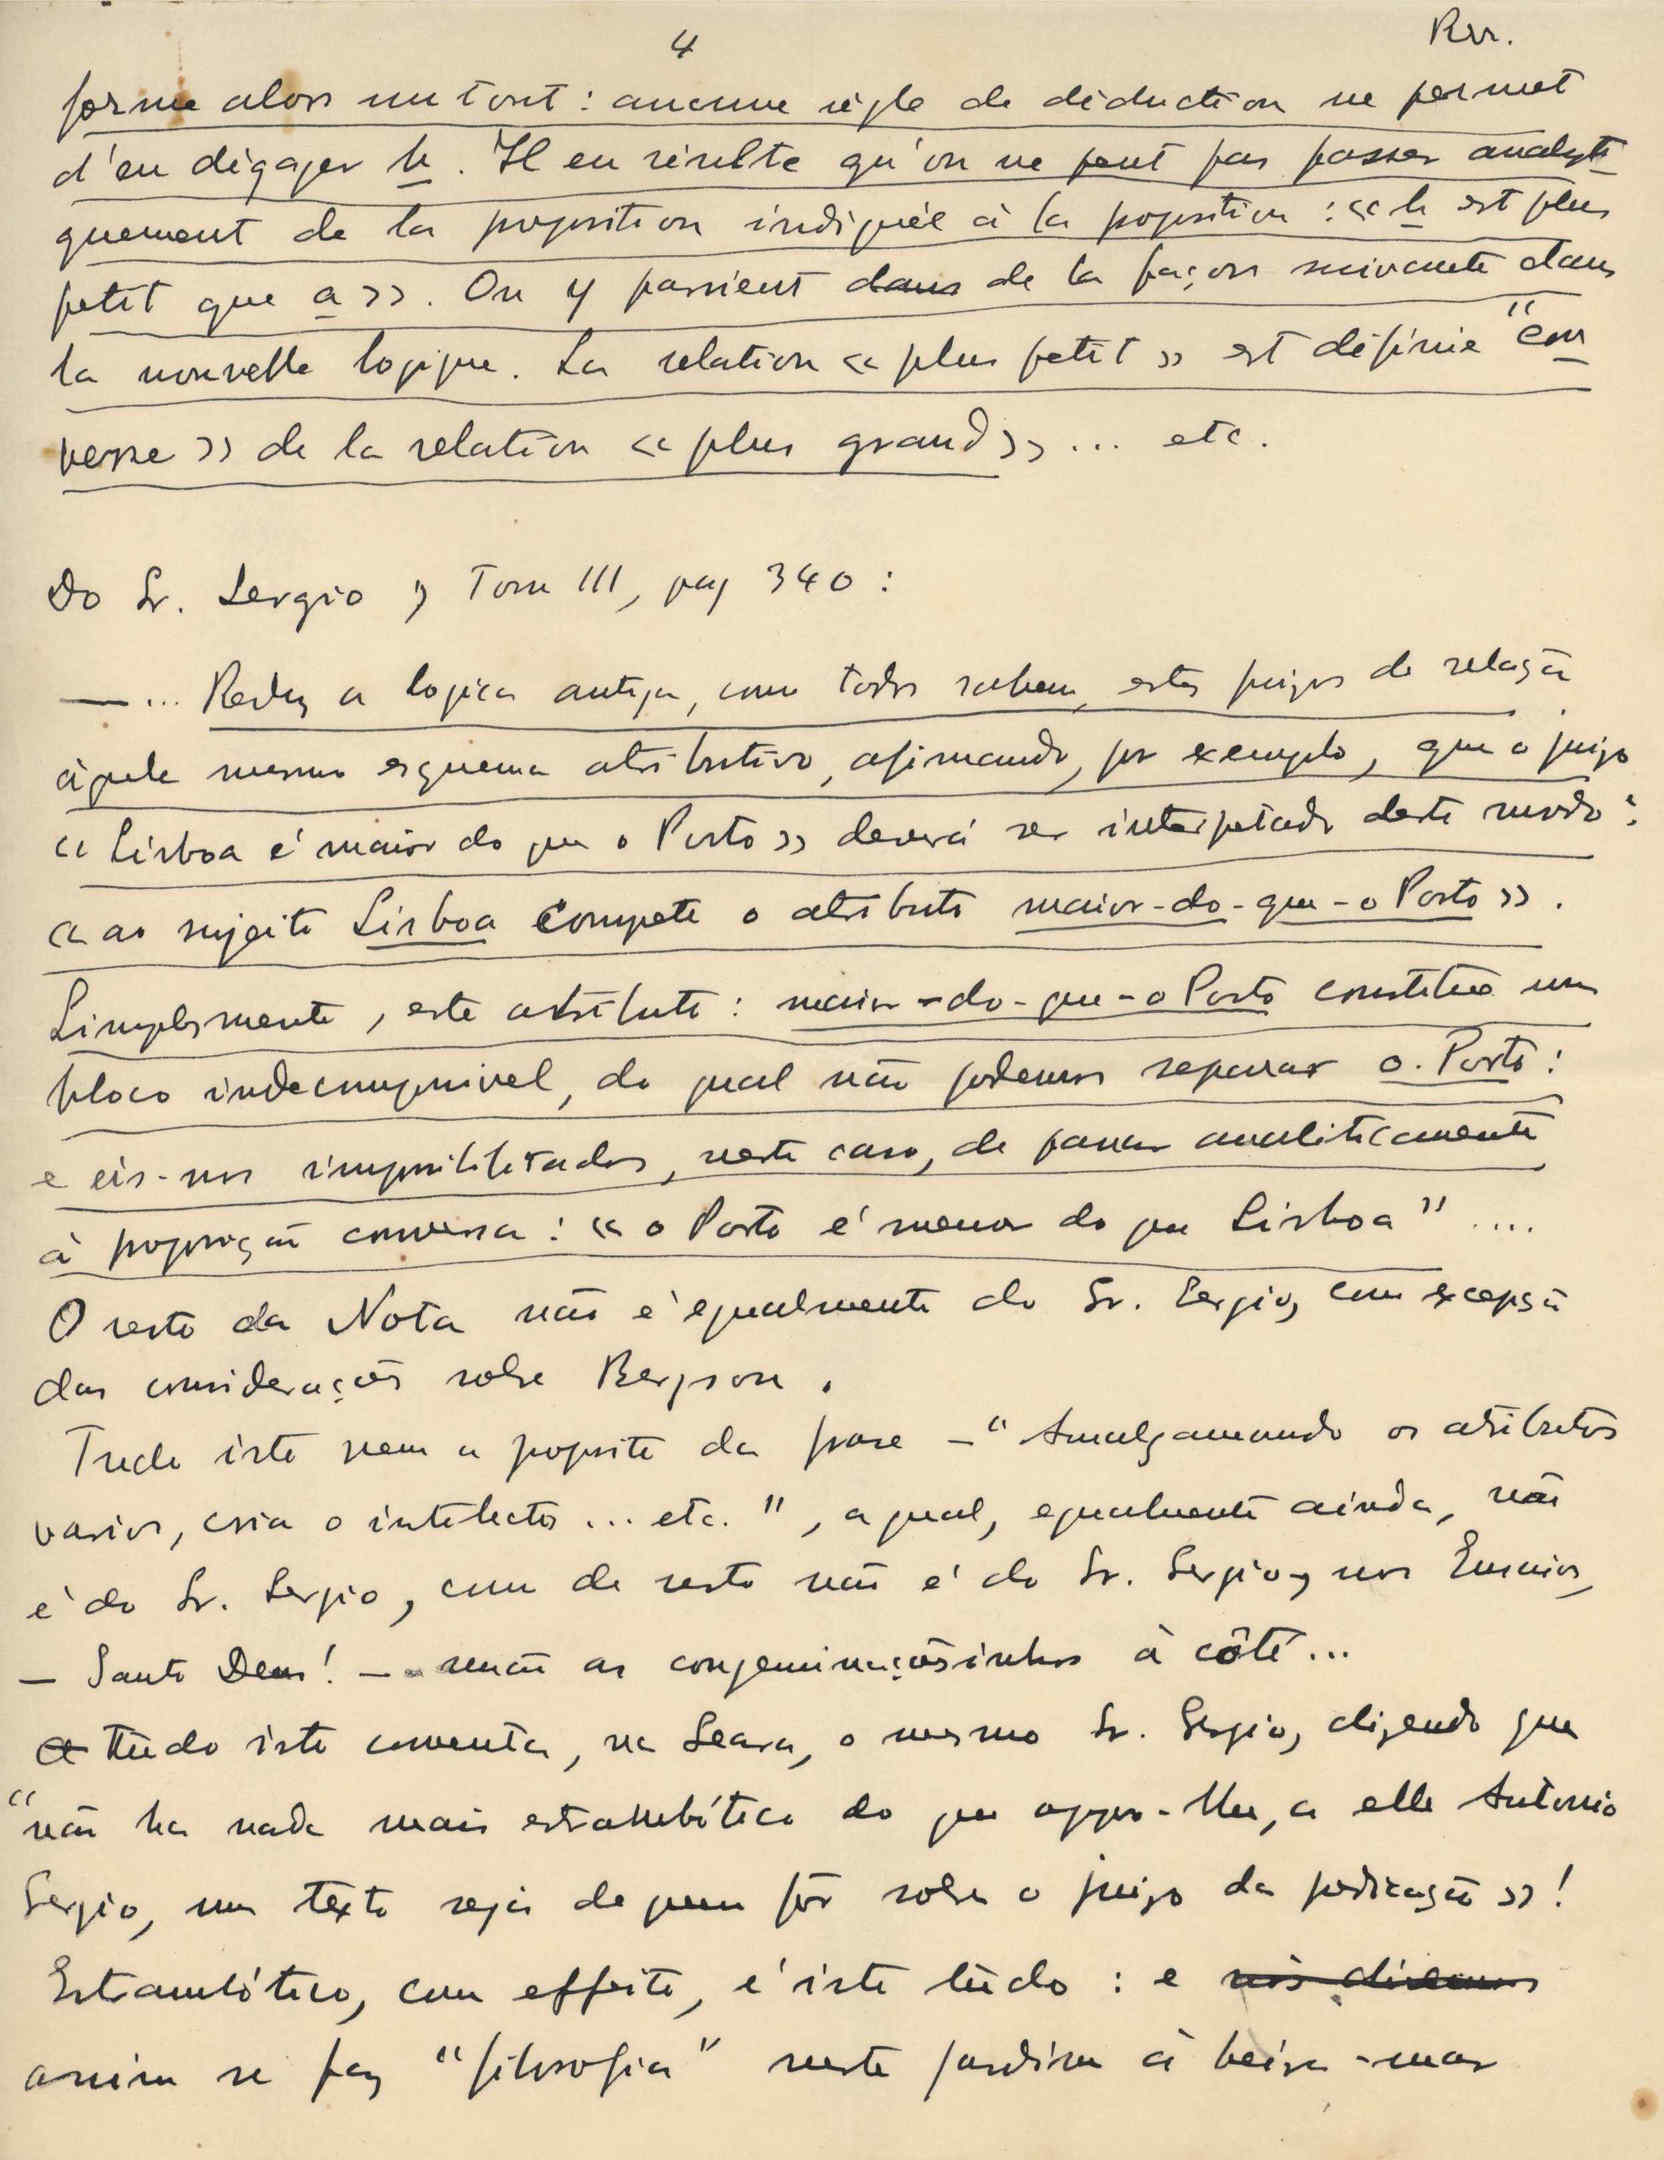 4
Rur.
forme alors un tout : aucune règle de déduction ne permet
d'en dégager b. Il en résulte qu'on ne peut pas passer analyti-
quement de la proposition indiquée à la proposition : «b est plus
petit que a». On y parvient dans de la façon suivante dans
la nouvelle logique. La relation «plus petit» est définie "con
verse» de la relation «plus grand» ... etc.
Do Sr. Sergio, Tom III, pag 340 :
— ... Reduz a logica antiga, como todos sabem, estes juizos de relação
àquele mesmo esquema atributivo, afirmando, por exemplo, que o juizo
«Lisboa é maior do que o Porto» deverá ser interpretado deste modo :
«ao sujeito Lisboa compete o atributo maior-do-que-o Porto».
Simplesmente, este atributo : maior-do-que-o Porto constitue um
bloco indecomponivel, do qual não podemos separar o Porto :
e eis-nos impossibilitados, neste caso, de passar analiticamente
à proposição conversa : «o Porto é menor do que Lisboa" ....
O resto da Nota não é egualmente do Sr. Sergio, com excepção
das considerações sobre Bergson.
Tudo isto vem a proposito da frase — "Amalgamando os atributos
varios, cria o intelecto ... etc.", a qual, egualmente ainda, não
é do Sr. Sergio, como de resto não é do Sr. Sergio, nos Ensaios,
— Santo Deus! — senão as congeminaçõesinhas à côté ...
tudo isto comenta, na Seara, o mesmo Sr. Sergio, dizendo que
"não ha nada mais estrambótico do que oppor-lhe, a elle Antonio
Sergio, um texto seja de quem fôr sobre o juizo da predicação»!
Estrambótico, com effeito, é isto tudo : e nós diremos
assim se faz "filosofia" neste jardim à beira-mar